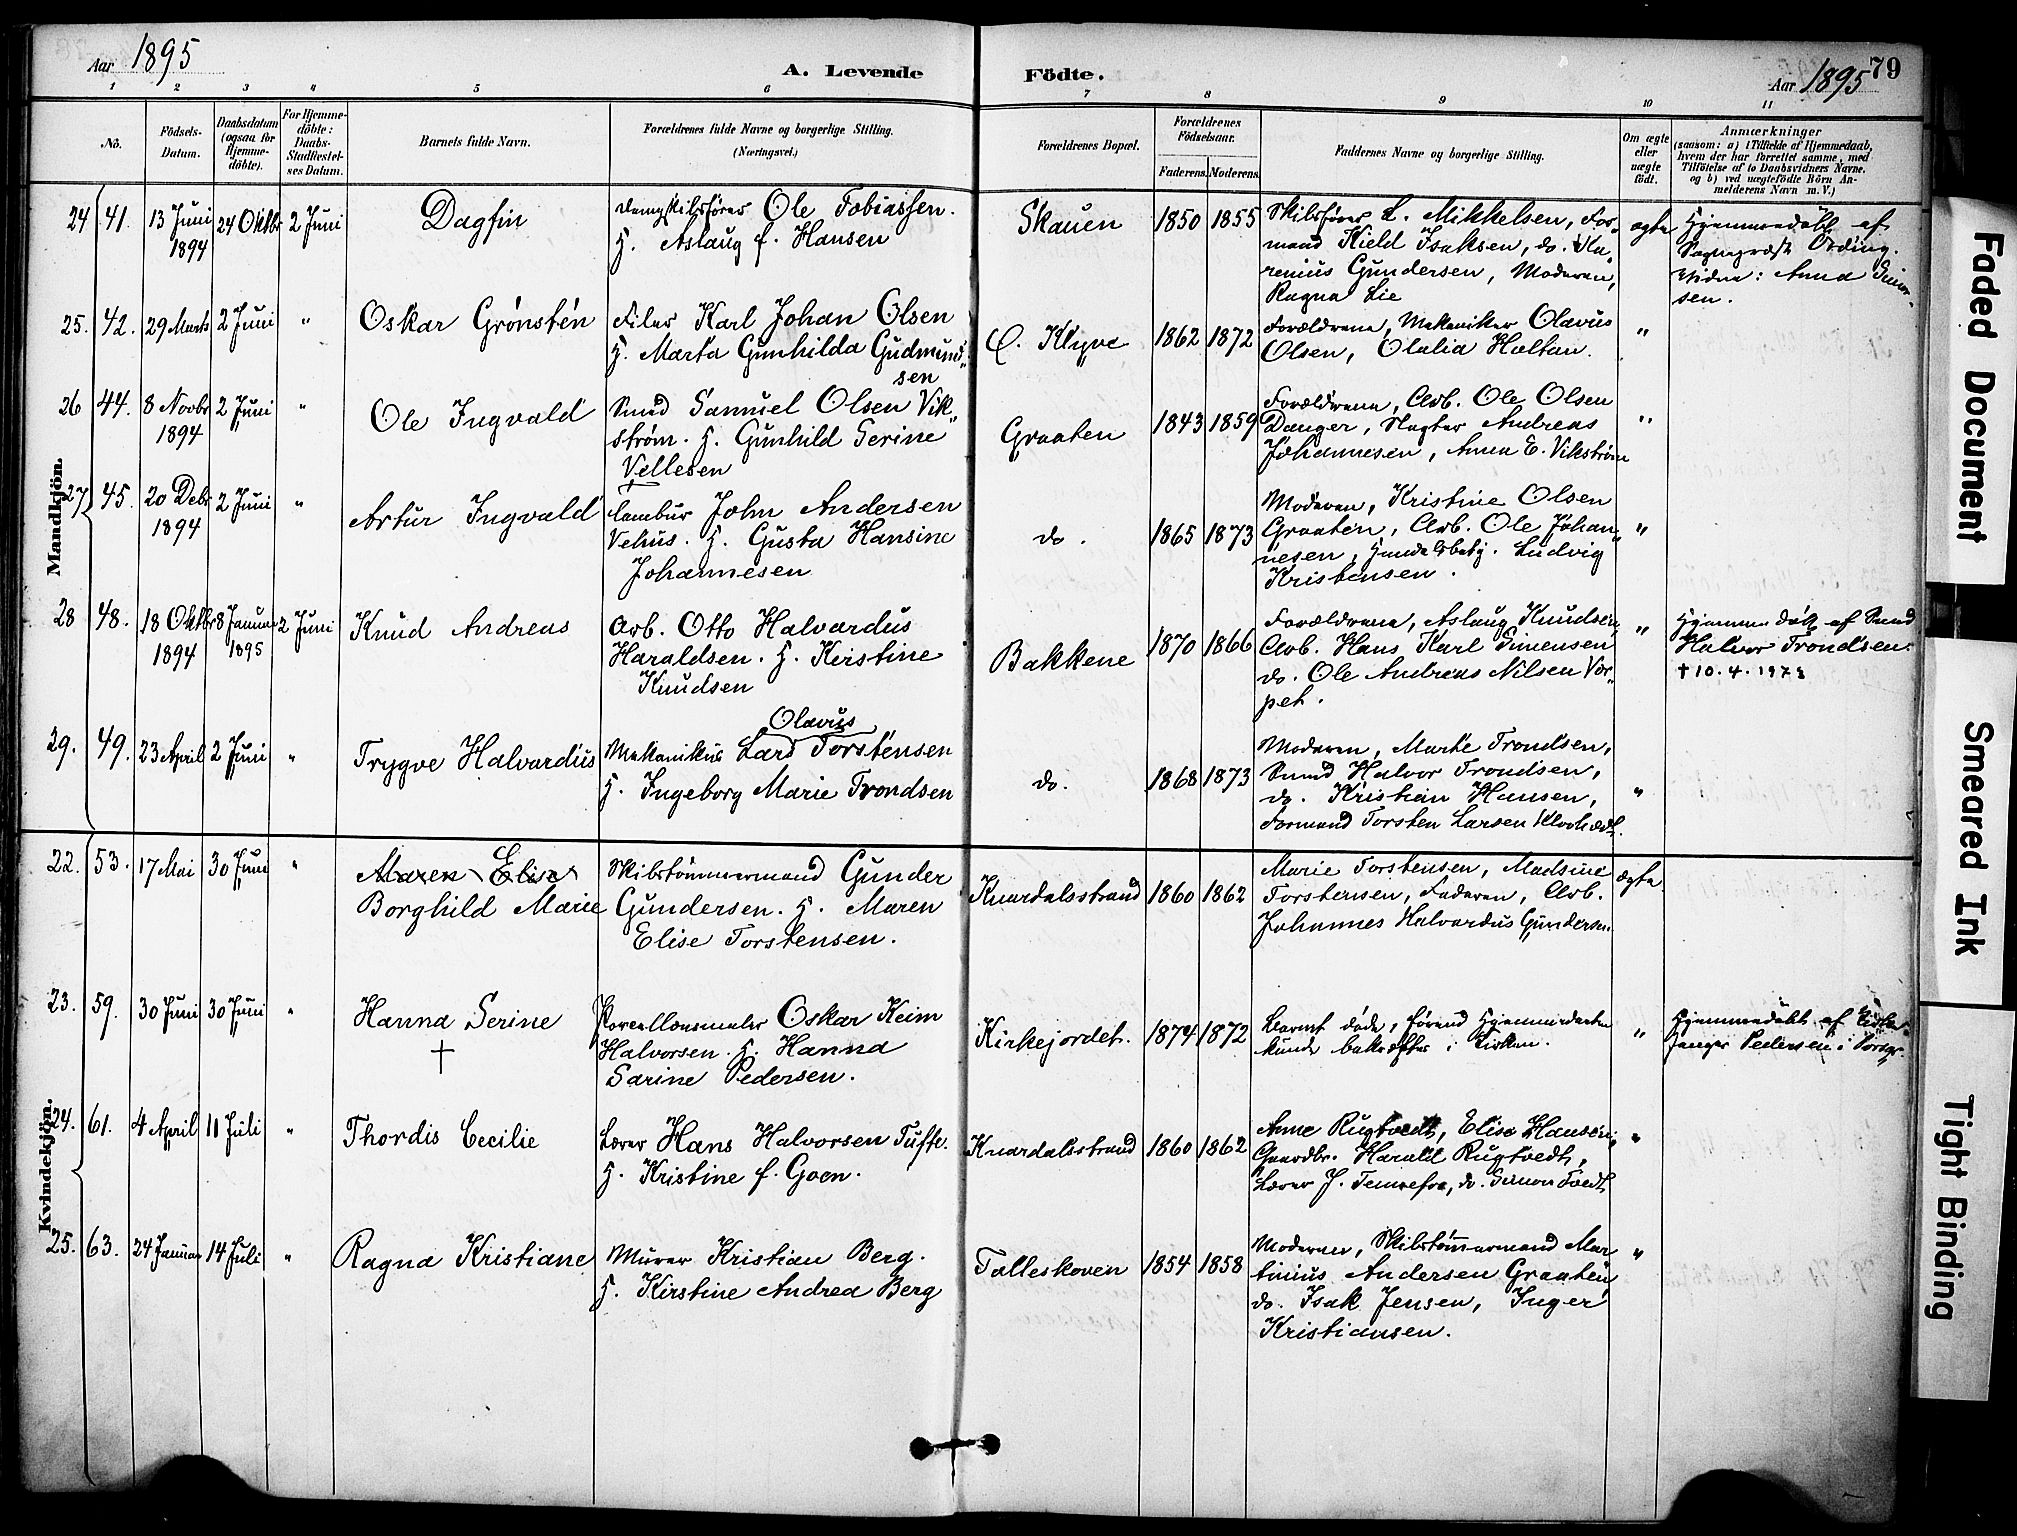 Aar 1895
A. Levende Födte.
Aar 1895
79
1 2 3 4 5 6 7 8 9 10 11
No.
Födsels-
Datum.
Daabsdatum
(ogsaa for
Hjemme-
döbte).
For Hjemme-
döbte:
Daabs-
Stadfæstel-
ses Datum.
Barnets fulde Navn.
Forældrenes fulde Navne og borgerlige Stilling.
(Næringsvei.)
Forældrenes Bopæl.
Forældrenes
Födselsaar.
Faderens. Moderens.
Faddernes Navne og borgerlige Stilling.
Om ægte
eller
uægte
födt.
Anmærkninger
(saasom: a) i Tilfælde af Hjemmedaab,
hvem der har forrettet samme, med
Tilföielse af to Daabsvidners Navne,
og b) ved uægtefödte Börn An-
melderens Navn m. V.)
Mandkjön.
24 41. 13 Juni 1894 24 Oktbr 2 Juni
Dagfin
Dampskibsfører Ole Tobiassen.
H. Aslaug f. Hansen
Skauen 1850 1855
Skibsfører L. Mikkelsen, For-
mand Kield Isaksen, do. Ma-
renius Gundersen, Moderen,
Ragna Lie
ægte
Hjemmedøbt af
Sogneprest Ording.
Vidne: Anna Simon-
sen.
25. 42. 29 Marts 2 Juni "
Oskar Grønstén
Filer Karl Johan Olsen
H. Marta Gunhilda Gudmund-
sen
Ø. Klyve 1862 1872
Forældrene, Mekaniker Olavus
Olsen, Olalia Holtan.
"
26 44. 8 Novbr 1894 2 Juni "
Ole Ingvald
Smed Samuel Olsen Vik-
strøm. H. Gunhild Serine
Vellesen
Graaten 1843 1859
Forældrene, Arb. Ole Olsen
Danger, Slagter Andreas
Johannesen, Anna E. Vikstrøm
"
27 45. 20 Debr 1894 2 Juni "
Artur Ingvald
John Andersen
Vehus. H. Gusta Hansine
Johannesen
do. 1865 1873
Moderen, Kristine Olsen
Graaten, Arb. Ole Johan-
nesen, Handelsbetj. Ludvig
Kristensen.
"
28 48. 18 Oktbr 1894 8 Januar 1895 2 Juni
Knud Andreas
Arb. Otto Halvardus
Haraldsen. H. Kirstine
Knudsen
Bakkene 1870 1866
Forældrene, Aslaug Knudsen,
Arb. Hans Karl Simensen
do. Ole Andreas Nilsen Vor-
pet.
"
Hjemmedøbt af Smed
Halvor Trondsen.
† 10.4.1978
29. 49. 23 April 2 Juni "
Trygve Halvardus
Olavus
Mekanikus Lars Torstensen
H. Ingeborg Marie Trondsen
do. 1868 1873
Moderen, Marte Trondsen,
Smed Halvor Trondsen,
do. Kristian Hansen,
Formand Torsten Larsen Klovholt.
"
Kvindekjön.
22. 53. 17 Mai 30 Juni "
Maren Elise
Borghild Marie
Skibstømmermand Gunder
Gundersen. H. Maren
Elise Torstensen.
Knardalsstrand 1860 1862
Marie Torstensen, Madsine
Torstensen, Faderen, Arb.
Johannes Halvardus Gundersen
ægte
23. 59. 30 Juni 30 Juni "
Hanna Serine
†
Porcellænsmaler Oskar Keim
Halvorsen. H. Hanna
Sarine Pedersen.
Kirkejordet. 1874 1872
Barnet døde, førend Hjemmedaaben
kunde bekræftes i Kirken.
"
Hjemmedøbt af
Pedersen i Porsgr.
24. 61. 4 April 11 Juli "
Thordis Cecilie
Lærer Hans Halvorsen Tufte.
H. Kristine f. Goen.
Knardalsstrand 1860 1862
Anne Rugtvedt, Elise Hansen,
Gaardbr. Harald Rugtvedt,
Lærer J. Temrefos, do. Simon Tvedt
"
25. 63. 24 Januar 14 Juli "
Ragna Kristiane
Murer Kristian Berg.
H. Kirstine Andrea Berg
Tolleskoven 1854 1858
Moderen, Skibstømmermand Mar-
tinius Andersen Graaten
do. Isak Jensen, Inger
Kristiansen.
"
Faded Document
Smeared Ink
Tight Binding